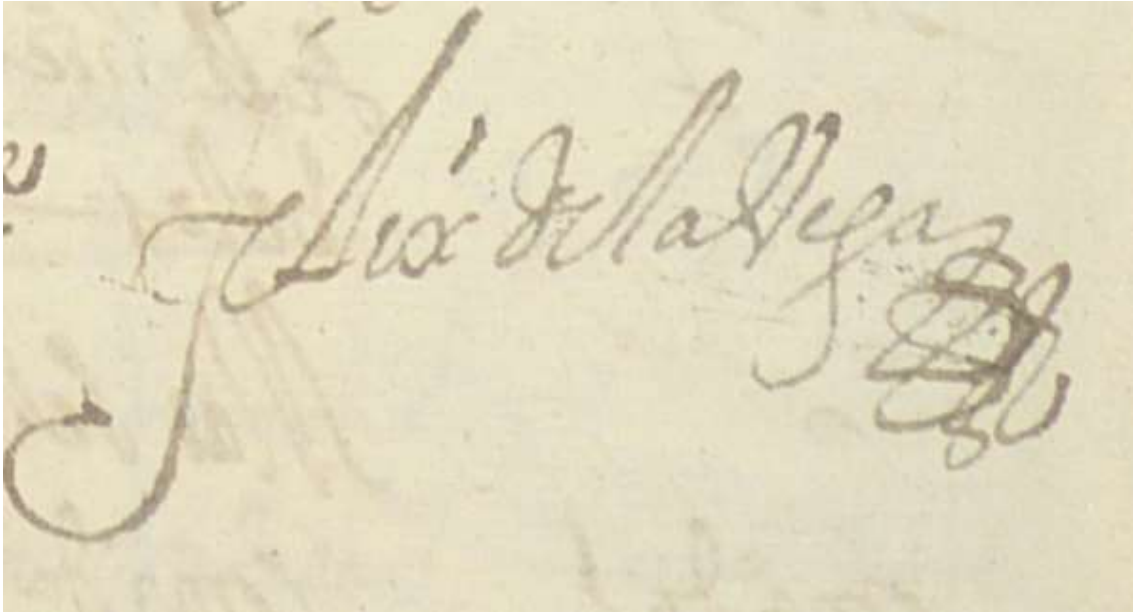 Felix de la Vega